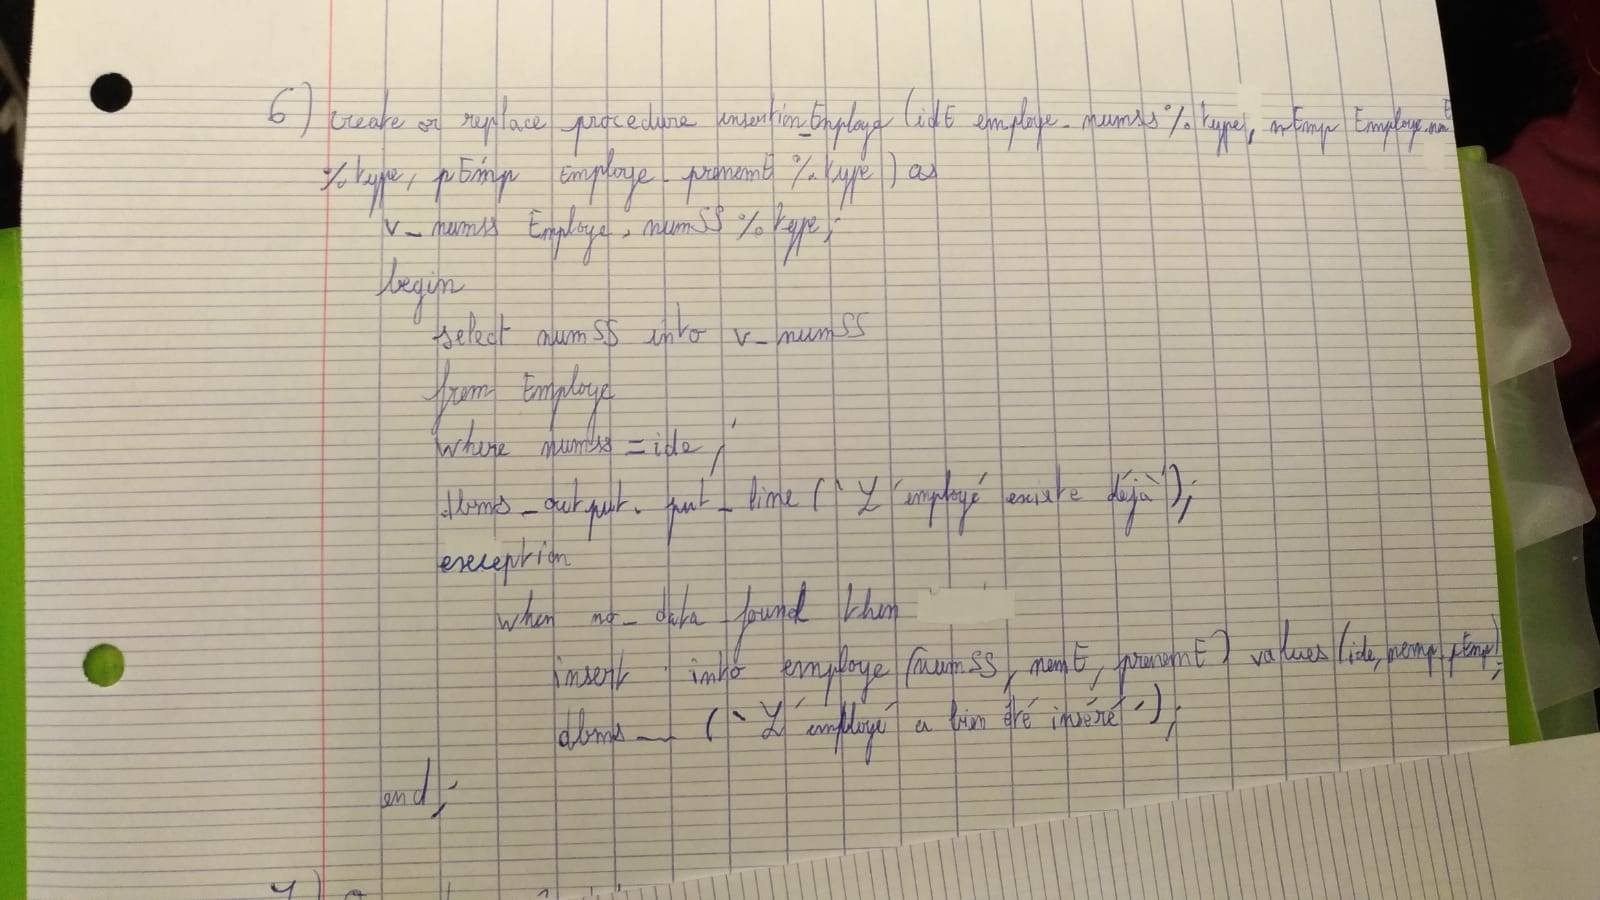 6) create or replace procedure insertion_Employe (idE employe.numss%type, nEmp Employe.nomE
%type, pEmp Employe.prenomE %type) as
v_numss Employe.numSS%type;
begin
select numSS into v_numSS
from Employe
where numss = ide;
dbms_output.put_line('L'employé existe déjà');
exception
when no_data_found then
insert into employe (numSS, nomE, prenomE) values (ide, nemp, pEmp);
dbms__ ('L'employé a bien été inséré');
end;
7)